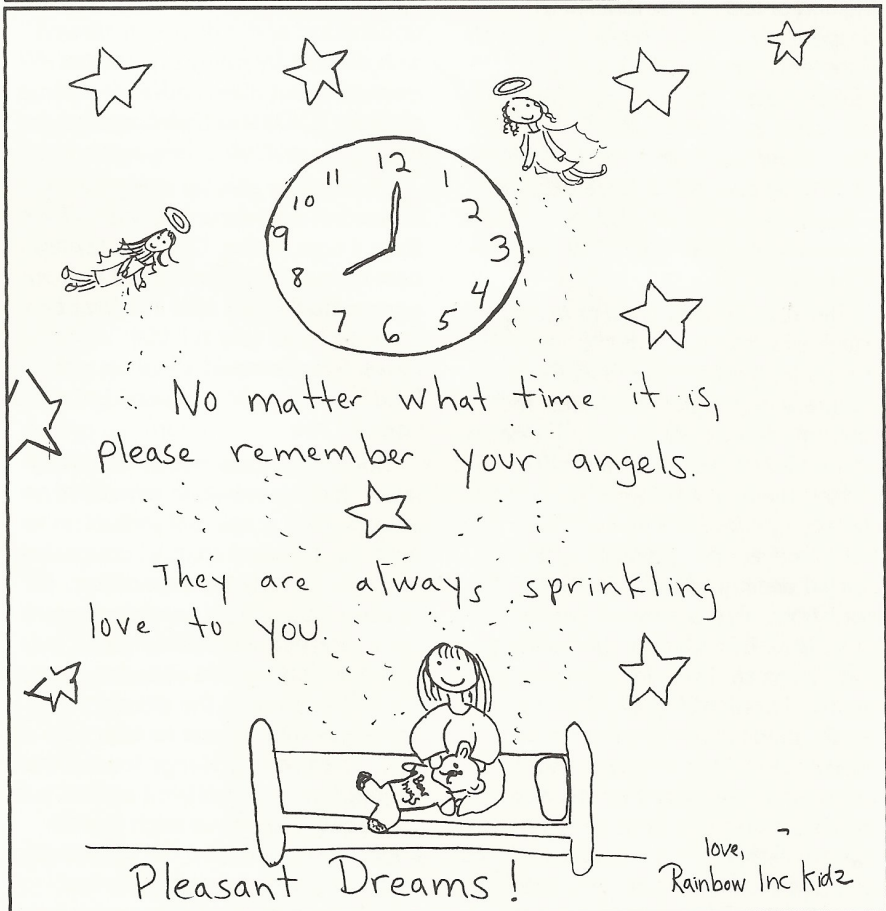 12
11 1
10 2
9 3
8 4
7 5
6
No matter what time it is,
please remember your angels.
They are always sprinkling
love to you.
Pleasant Dreams!
love,
Rainbow Inc Kidz